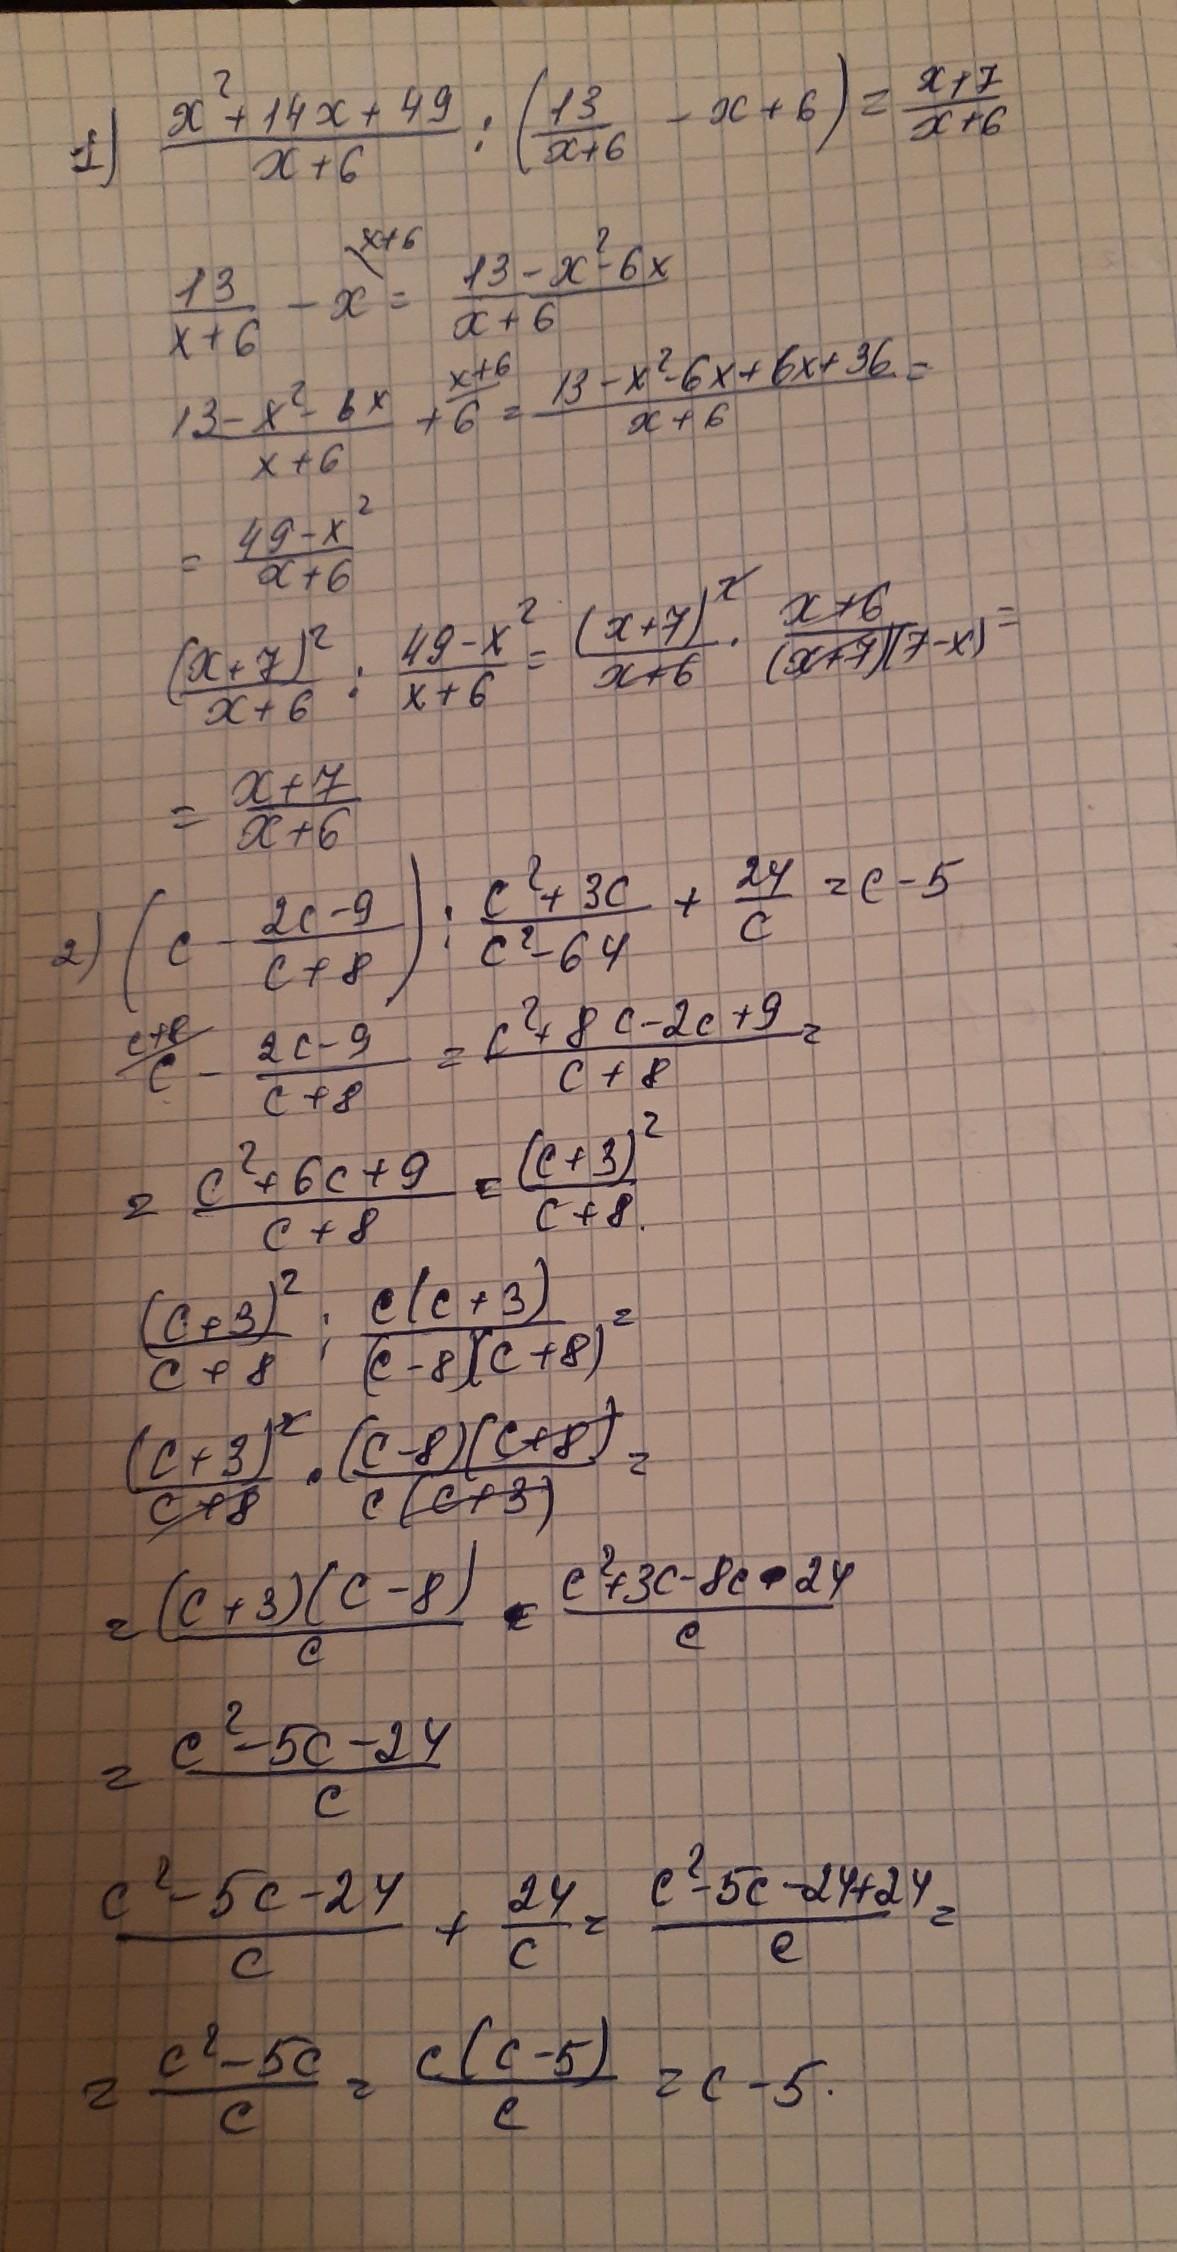 1) (x²+14x+49)/(x+6) : (13/(x+6) - x+6) = (x+7)/(x+6)
13/(x+6) - x^(x+6) = (13-x²-6x)/(x+6)
(13-x²-6x)/(x+6) + 6^(x+6) = (13-x²-6x+6x+36)/(x+6) =
= (49-x²)/(x+6)
(x+7)²/(x+6) : (49-x²)/(x+6) = (x+7)²/(x+6) · (x+6)/((x+7)(7-x)) =
= (x+7)/(x+6)
2) (c - (2c-9)/(c+8)) : (c²+3c)/(c²-64) + 24/c = c-5
c^(c+8) - (2c-9)/(c+8) = (c²+8c-2c+9)/(c+8) =
= (c²+6c+9)/(c+8) = (c+3)²/(c+8).
(c+3)²/(c+8) : c(c+3)/((c-8)(c+8)) =
(c+3)²/(c+8) · (c-8)(c+8)/(c(c+3)) =
= (c+3)(c-8)/c = (c²+3c-8c-24)/c
= (c²-5c-24)/c
(c²-5c-24)/c + 24/c = (c²-5c-24+24)/c =
= (c²-5c)/c = c(c-5)/c = c-5.